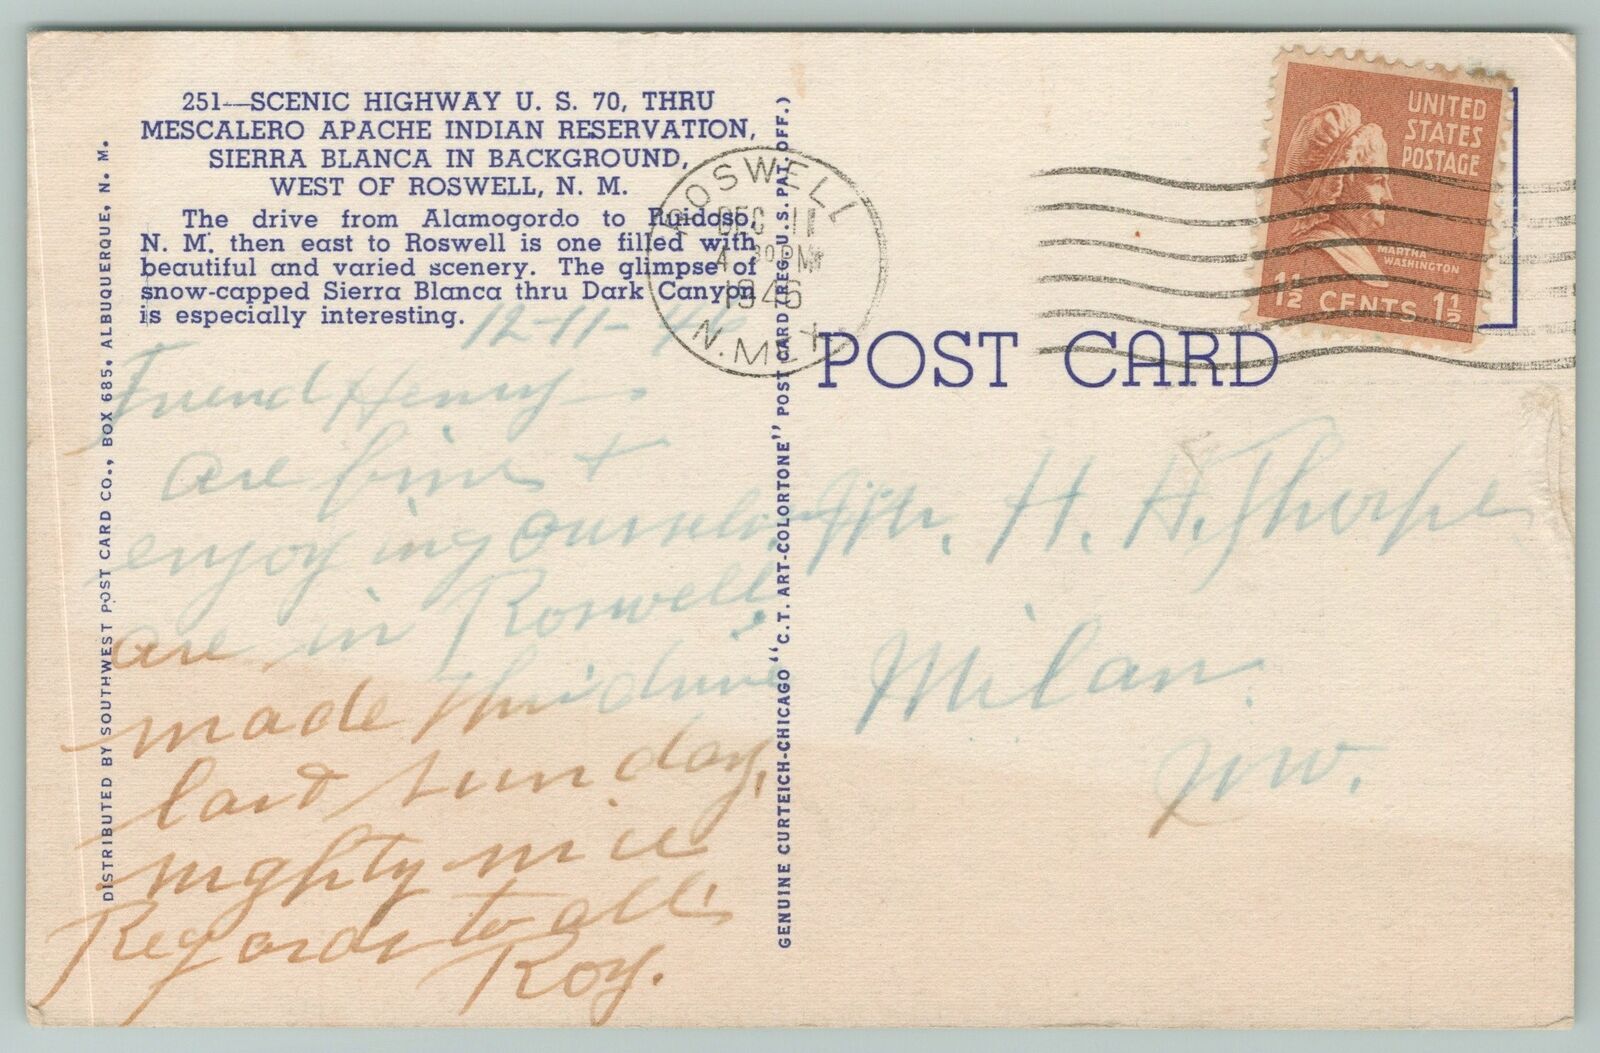 251—SCENIC HIGHWAY U. S. 70, THRU
MESCALERO APACHE INDIAN RESERVATION,
SIERRA BLANCA IN BACKGROUND,
WEST OF ROSWELL, N. M.
The drive from Alamogordo to Ruidoso,
N. M. then east to Roswell is one filled with
beautiful and varied scenery. The glimpse of
snow-capped Sierra Blanca thru Dark Canyon
is especially interesting.
12-11-46
Friend Henry
are fine &
enjoying ourselves
are in Roswell
made this drive
last sunday,
mighty nice
Regards to all
Roy.
DISTRIBUTED BY SOUTHWEST POST CARD CO., BOX 685, ALBUQUERQUE, N. M.
GENUINE CURTEICH-CHICAGO "C.T. ART-COLORTONE" POST CARD (REG. U.S. PAT. OFF.)
ROSWELL
DEC 11
4 30 PM
1946
N. MEX.
UNITED
STATES
POSTAGE
MARTHA
WASHINGTON
1½ CENTS 1½
POST CARD
Mr. H. A. Thorpe
Milan.